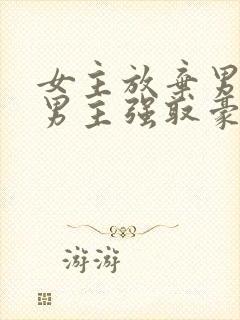 女主放弃男
男主强取豪
游游